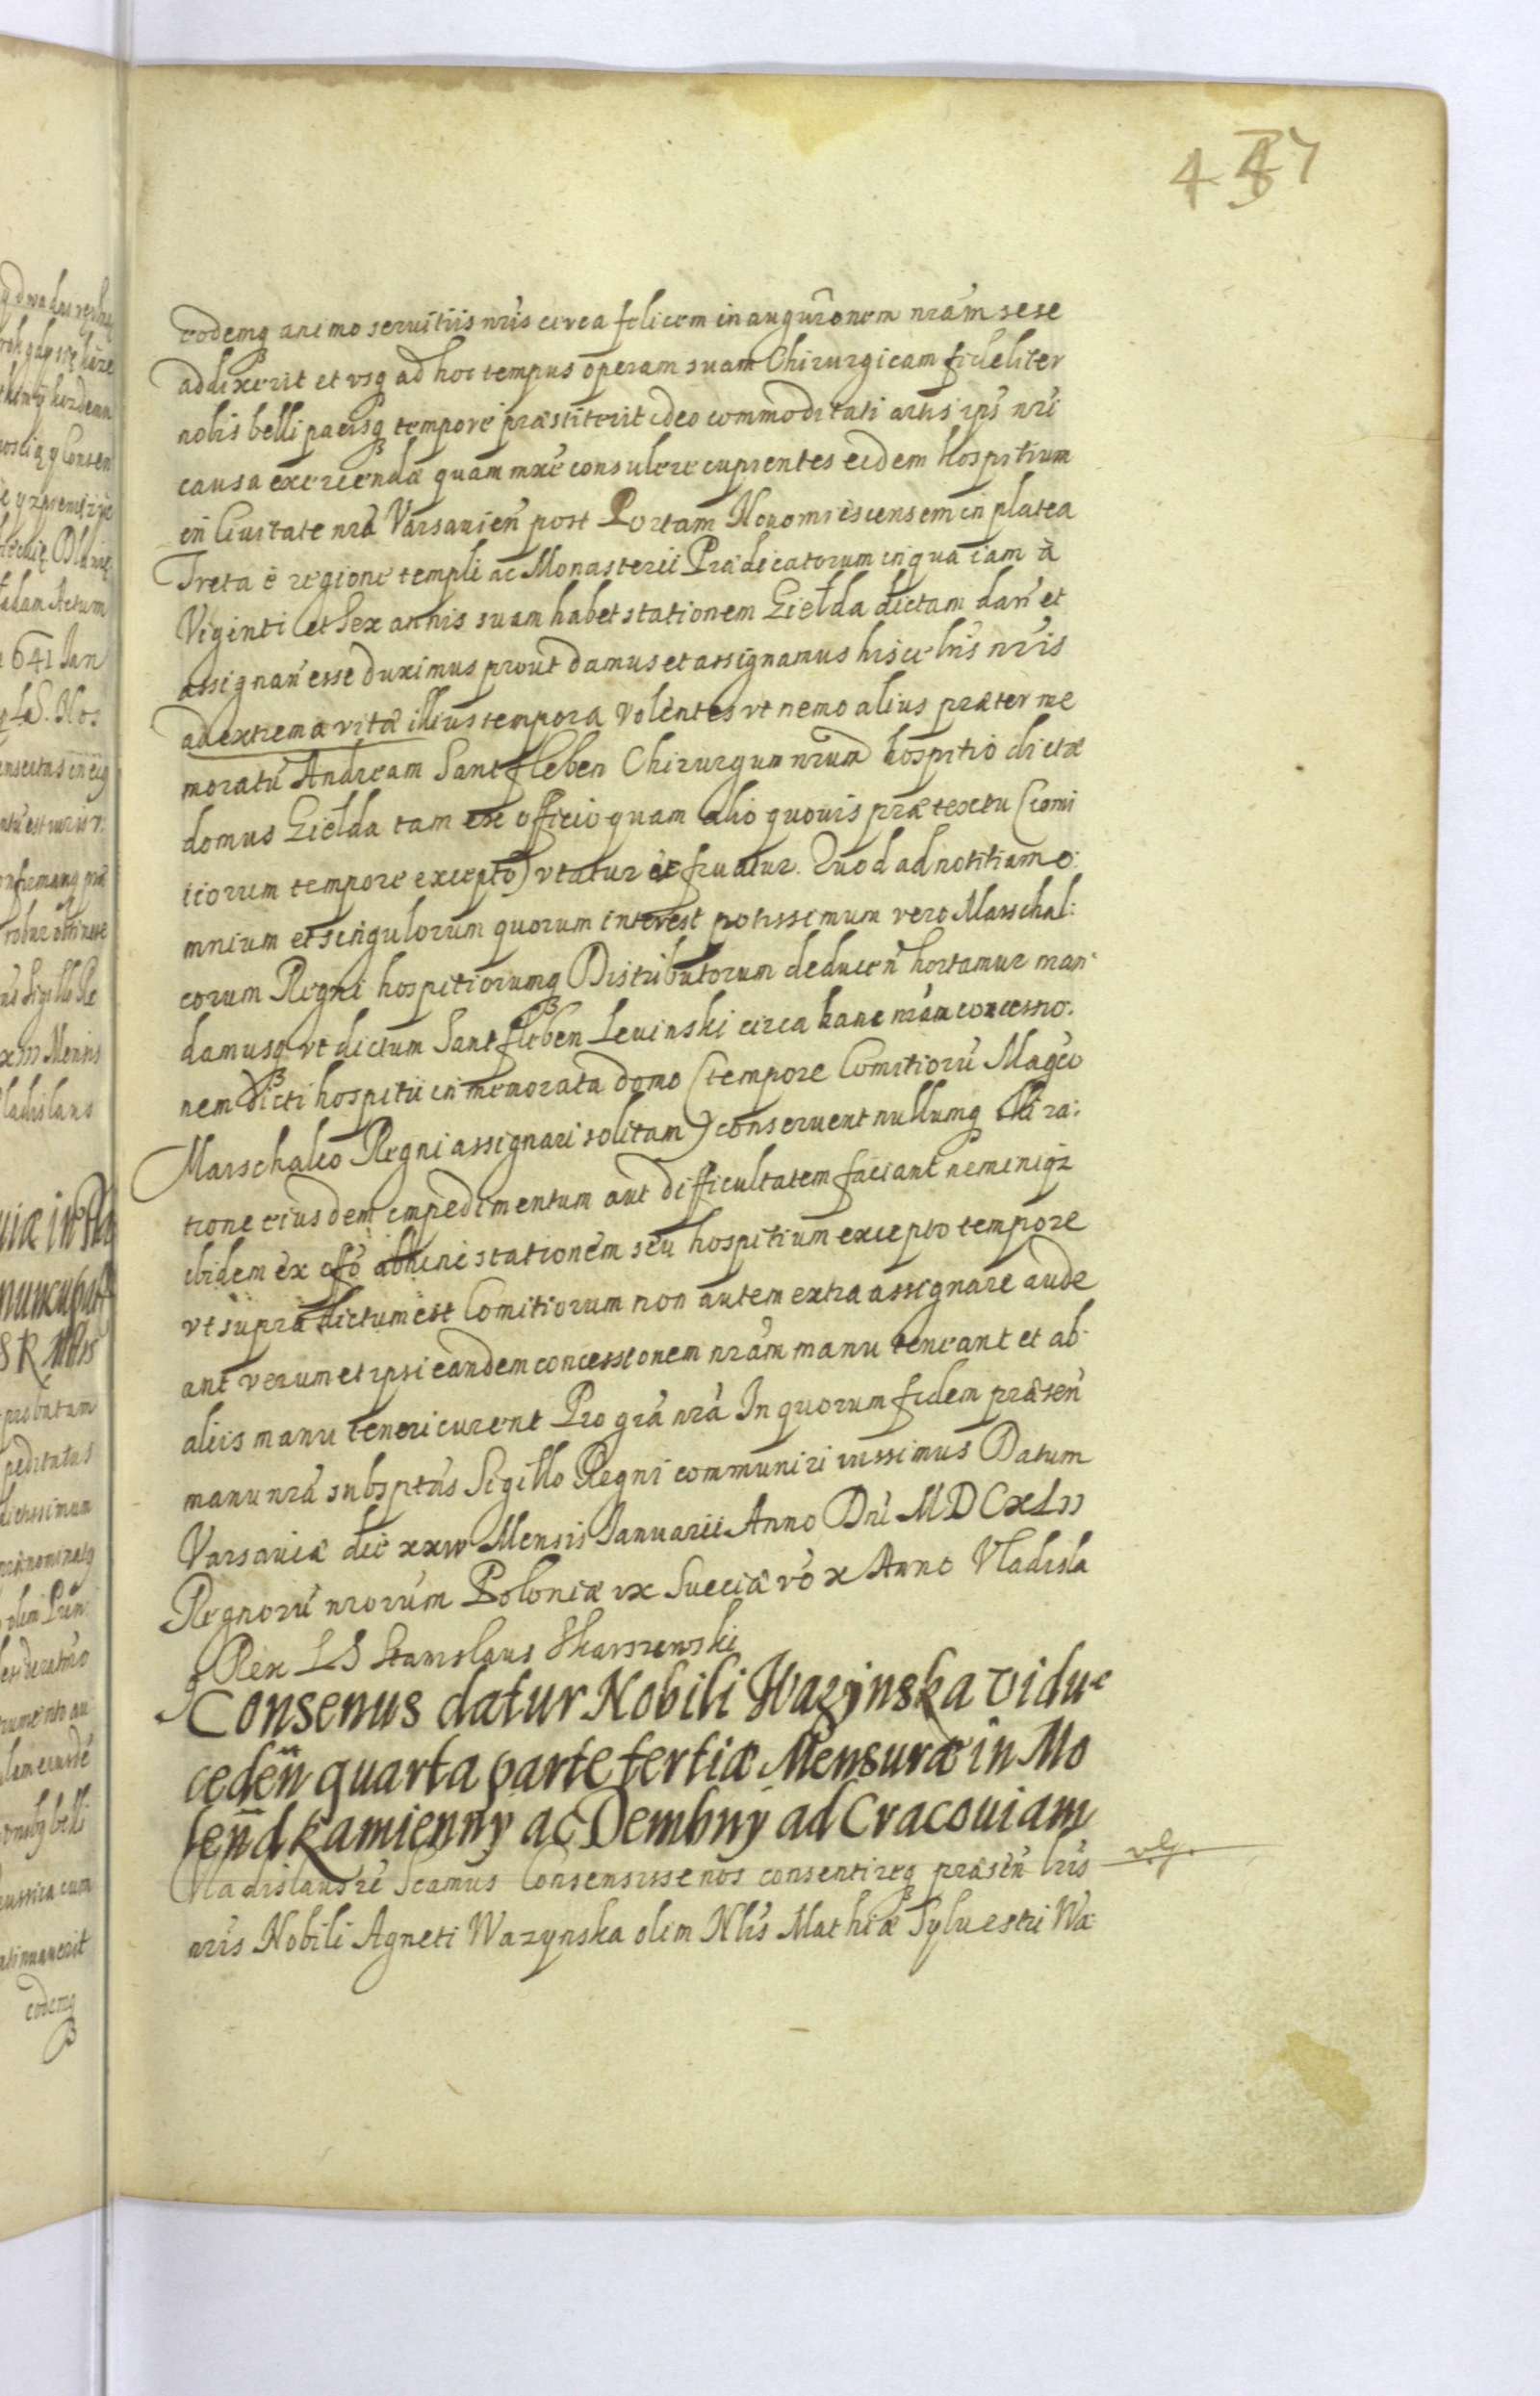 487
eodemq animo seruitiis nris circa felicem inaugurōnem nram sese
addixerit et vsq ad hoc tempus operam suam Chirurgicam fideliter
nobis belli pacisq tempore præstiterit ideo commoditati artis ips nri
causa exercendæ quam mxe consulere cupientes eidem hospitium
in Ciuitate nra Varsauien post Portam Nouomiescensem in platea
Freta e regione templi ac Monasterii Prædicatorum in qua iam a
Viginti et Sex annis suam habet stationem Giełda dictam dan et
assignan esse duximus prout damus et assignamus hisce lris nris
ad extrema vitæ illius tempora Volentes vt nemo alius præter me
moratu Andream Santfleben Chirurgum nrum hospitio dictæ
domus Giełda tam ex officio quam alio quouis prætextu (comi
tiorum tempore excepto) vtatur et fruatur. Quod ad notitiam o:
mnium et singulorum quorum interest potissimum vero Marschal:
corum Regni hospitiorumq Distributorum deducen hortamur man
damusq vt dictum Santfleben Leuinski circa hanc nram concessio:
nem dicti hospitii in memorata domo (tempore Comitioru Magco
Marschalco Regni assignari solitam) conseruent nullumq illi ra:
tione eiusdem impedimentum aut difficultatem faciant neminiqz
ibidem ex offo abhinc stationem seu hospitium excepto tempore
vt supra dictum est Comitiorum non autem extra assignare aude
ant verum et ipsi eandem concessionem nram manu teneant et ab
aliis manu teneri curent Pro gra nra In quorum fidem præsen
manu nra subsptas Sigillo Regni communiri iussimus Datum
Varsauiæ die xxiv Mensis Ianuarii Anno Dni MDCxLII
Regnoru nrorum Poloniæ ix Sueciæ vo x Anno Vladisla
g Rex LS Stanislaus Skarszewski
Consenus datur Nobili Wazynska vidue
ceden quarta parte tertiæ Mensuræ in Mo
lend kamienny ac Dembny ad Cracouiam
Vladislaus ic Scamus Consensisse nos consentireq præsen lris
nris Nobili Agneti Wazynska olim Nlis Mathiæ Syluestri Wa: